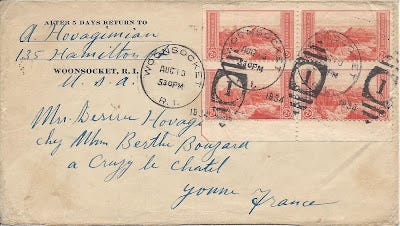 AFTER 5 DAYS RETURN TO
A. Hovagimian
135 Hamilton
WOONSOCKET, R. I.
U. S. A.
WOONSOCKET
AUG 13
530 PM
R.I.
1934
WOONSOCKET
R.I.
1934
1
1
Mrs Desirée Hovag
chez Mme Berthe Bouzard
a Cruzy le Chatel
Yonne France